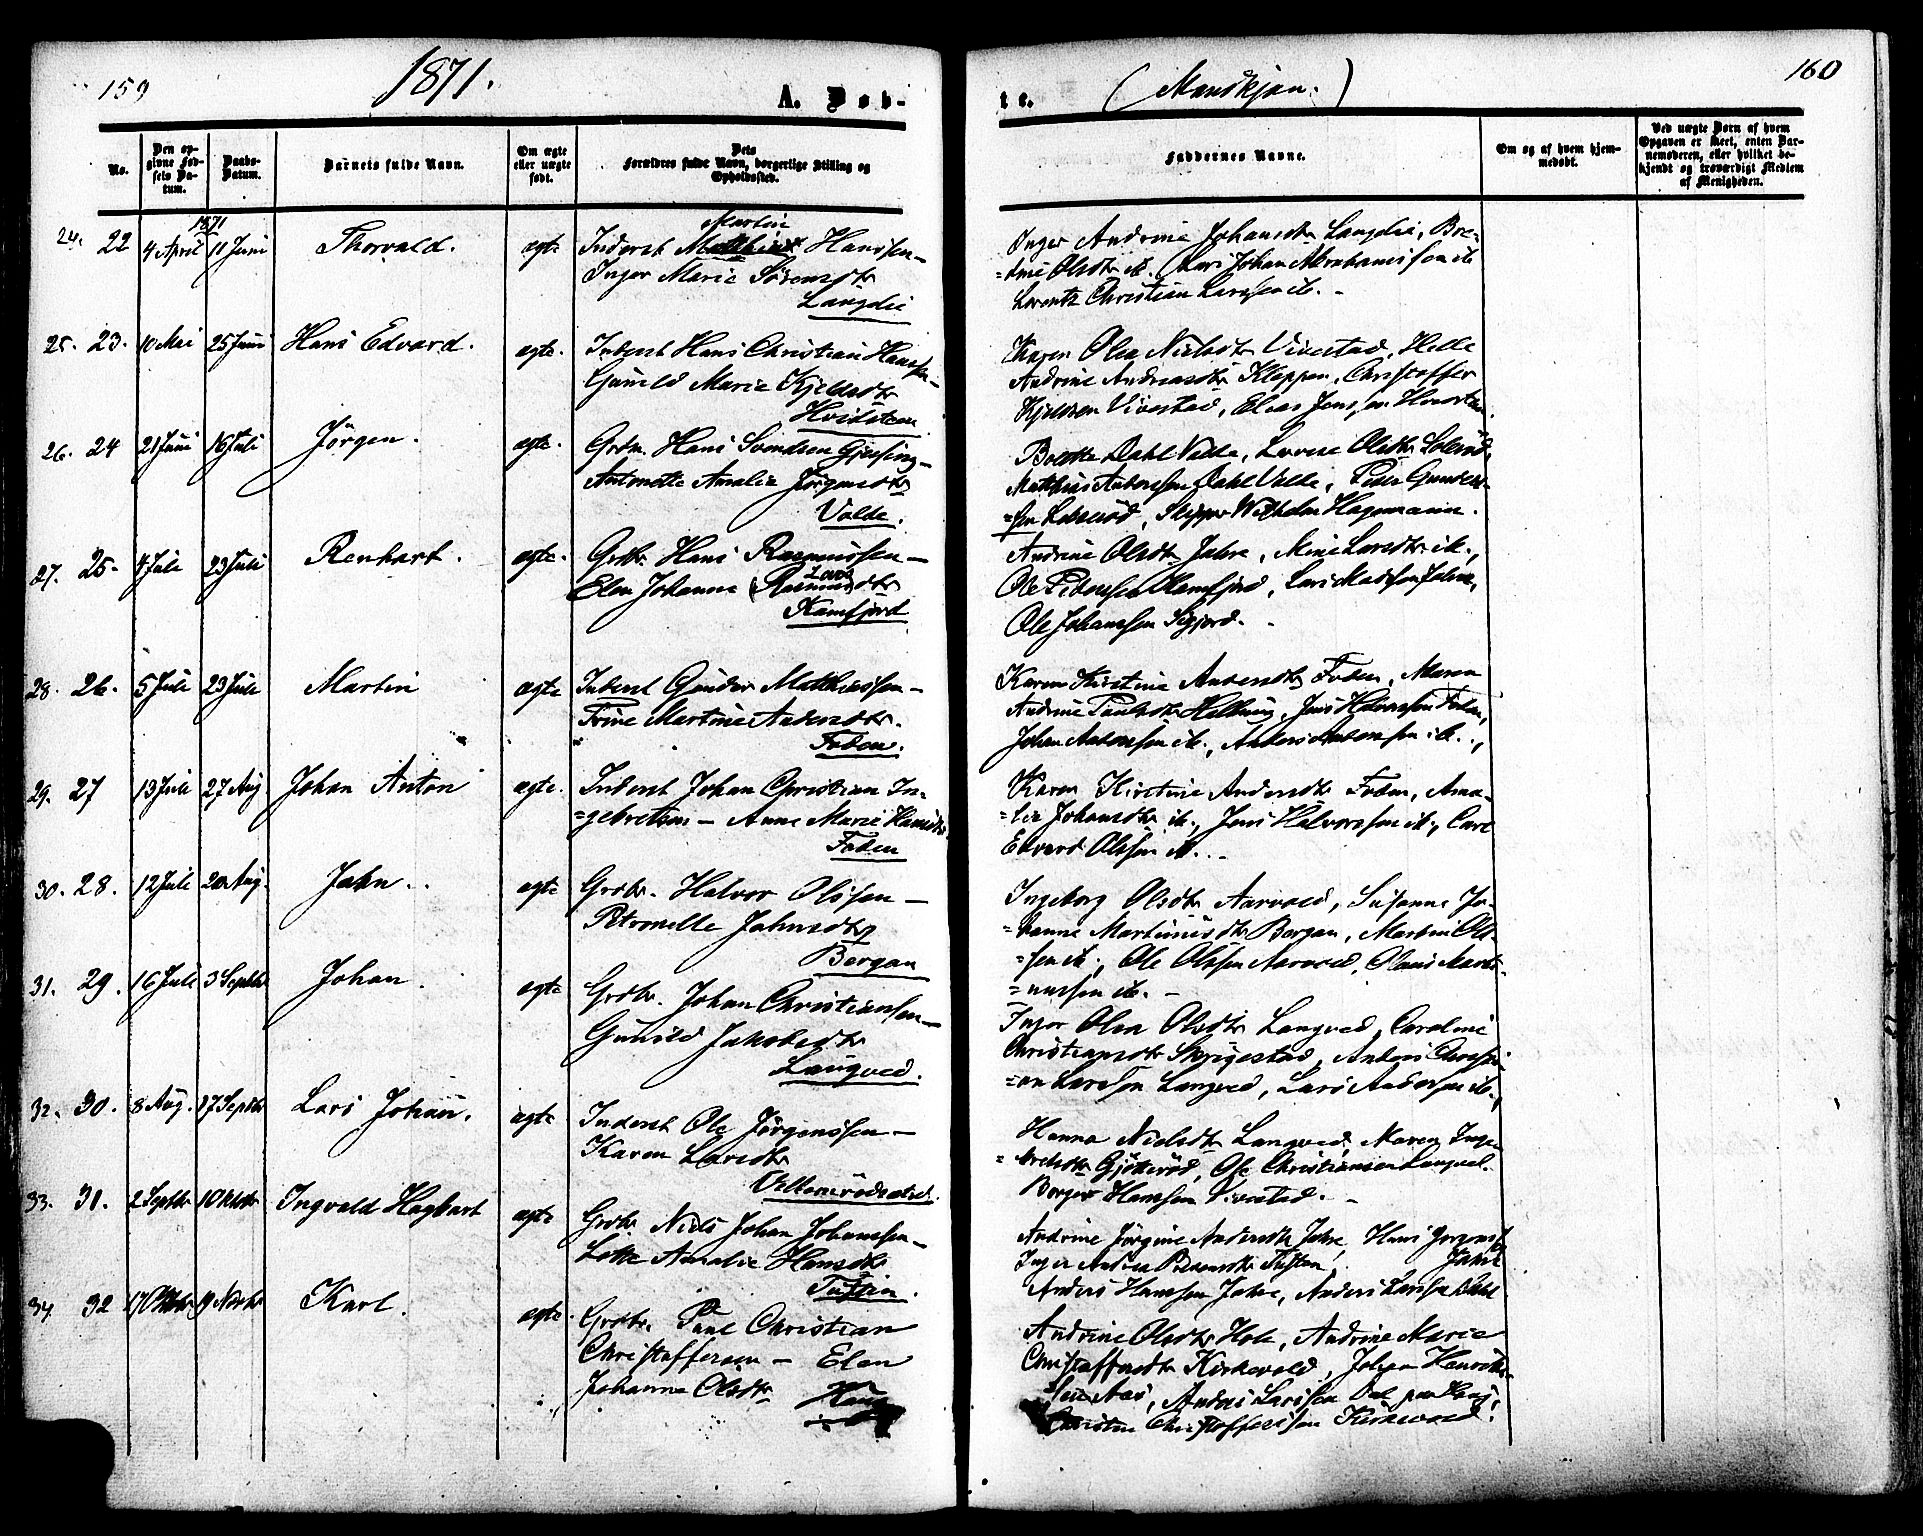 159
1871.
A. Døb-
te.
(Mandkjøn.)
160
No.
Den opgivne Fødsels Datum.
Daabs-Datum.
Barnets fulde Navn.
Om ægte eller uægte født.
Dets Forældres fulde Navn, borgerlige Stilling og Opholdssted.
Faddernes Navne.
Om og af hvem hjemmedøbt.
Ved uægte Børn af hvem Opgaven er skeet, enten Barnemoderen, eller hvilket bekjendt og troværdigt Medlem af Menigheden.
1871
24. 22 4 April 11 Juni Thorvald. ægte Inderst Martin Hanssen –
Inger Marie Sörensdtr
Langöie
Inger Andrine Johansdtr Langöie, Bre-
=dine Olsdtr ib. Lars Johan Abrahamssen ib
Lorentz Christian Larssen ib. –
25. 23. 10 Mai 25 Juni Hans Edvard. ægte. Inderst Hans Christian Hanssen –
Gunild Marie Kjeldsdtr
Hvidsteen
Karen Olea Nielsdtr Vivestad, Helle
Andrine Andreasdtr Kleppen, Christoffer
Kjeldsen Vivestad, Elias Jenssen
26. 24 21 Juni 16 Juli Jörgen. ægte. Grdbr. Hans Svendsen Gjersing –
Antonette Amalie Jörgensdtr
Valde.
Bolette Dahl Valle, Lovise Olsdtr
Matthias Anderssen Dahl Valle, Peder Gunders-
=sen, Skipper Wilhelm Hagemann.
27. 25. 4 Juli 23 Juli Renhart. ægte. Grdbr. Hans Rasmussen –
Elen Johanne (Rasmus)dtr
Lars
Kamfjord
Andrine Olsdtr Jahre, Mine Larsdtr ib.,
Ole Pedersen Kamfjord, Lars Madssen Jahre,
Ole Johanssen
28. 26. 5 Juli 23 Juli Martin ægte Inderst Gunder Matthiassen –
Trine Martine Andersdtr.
Foden.
Karen Kirstine Andersdtr Foden, Maren
Andrine Paulsdtr, Jens Halvorssen Foden,
Johan Anderssen ib., Anders Anderssen ib.,
29. 27 13 Juli 27 Aug. Johan Anton ægte. Inderst Johan Christian In-
=gebretsen – Anne Marie Hansdtr
Foden
Karen Kirstine Andersdtr Foden, Ama-
=lie Johansdtr ib., Jens Halvorssen ib., Carl
Edvard Olssen ib. –
30. 28. 12 Juli 20 Aug. Jahn. ægte Grdbr. Halvor Olssen –
Petronelle Jahnsdtr
Bergan
Ingeborg Olsdtr Aarvold, Susanne Jo-
=hanne Martinusdtr Bergan, Martin Ols-
=sen ib., Ole Olssen Aarvold, Olaus Marti-
=nussen ib. –
31. 29. 16 Juli 3 Septbr Johan. ægte Grdbr. Johan Christianssen –
Gunild Jakobsdtr
Langved.
Inger Olea Olsdtr Langved, Caroline
Christiansdtr, Anders Christi-
=an Larssen Langved, Lars Anderssen ib.,
32. 30. 8 Aug. 17 Septbr Lars Johan. ægte Inderst Ole Jörgenssen –
Karen Larsdtr
Hanna Nielsdtr Langved, Maren Inge-
=bretsdtr, Ole Christiansen Langved
Borger Hanssen Vivestad. –
33. 31. 2 Septbr 1 Oktbr Ingvald Hagbart ægte Grdbr. Niels Johan Johanssen –
Lotte Amalie Hansdtr
Andrine Jörgine Andersdtr Jahre, Hans Jörgenss
Jahre
Anders Hanssen Jahre, Anders Larssen
34. 32 17 Oktbr 19 Novbr Karl. ægte. Grdbr. Paul Christian
Christoffersen – Elen
Johanne Olsdtr Haug
Andrine Olsdtr Holt, Andrine Marie
Christoffersdtr Kirkevold, Johan Henrik-
=sen Aas, Anders Larssen
Christen Christofferssen Kirkevold.